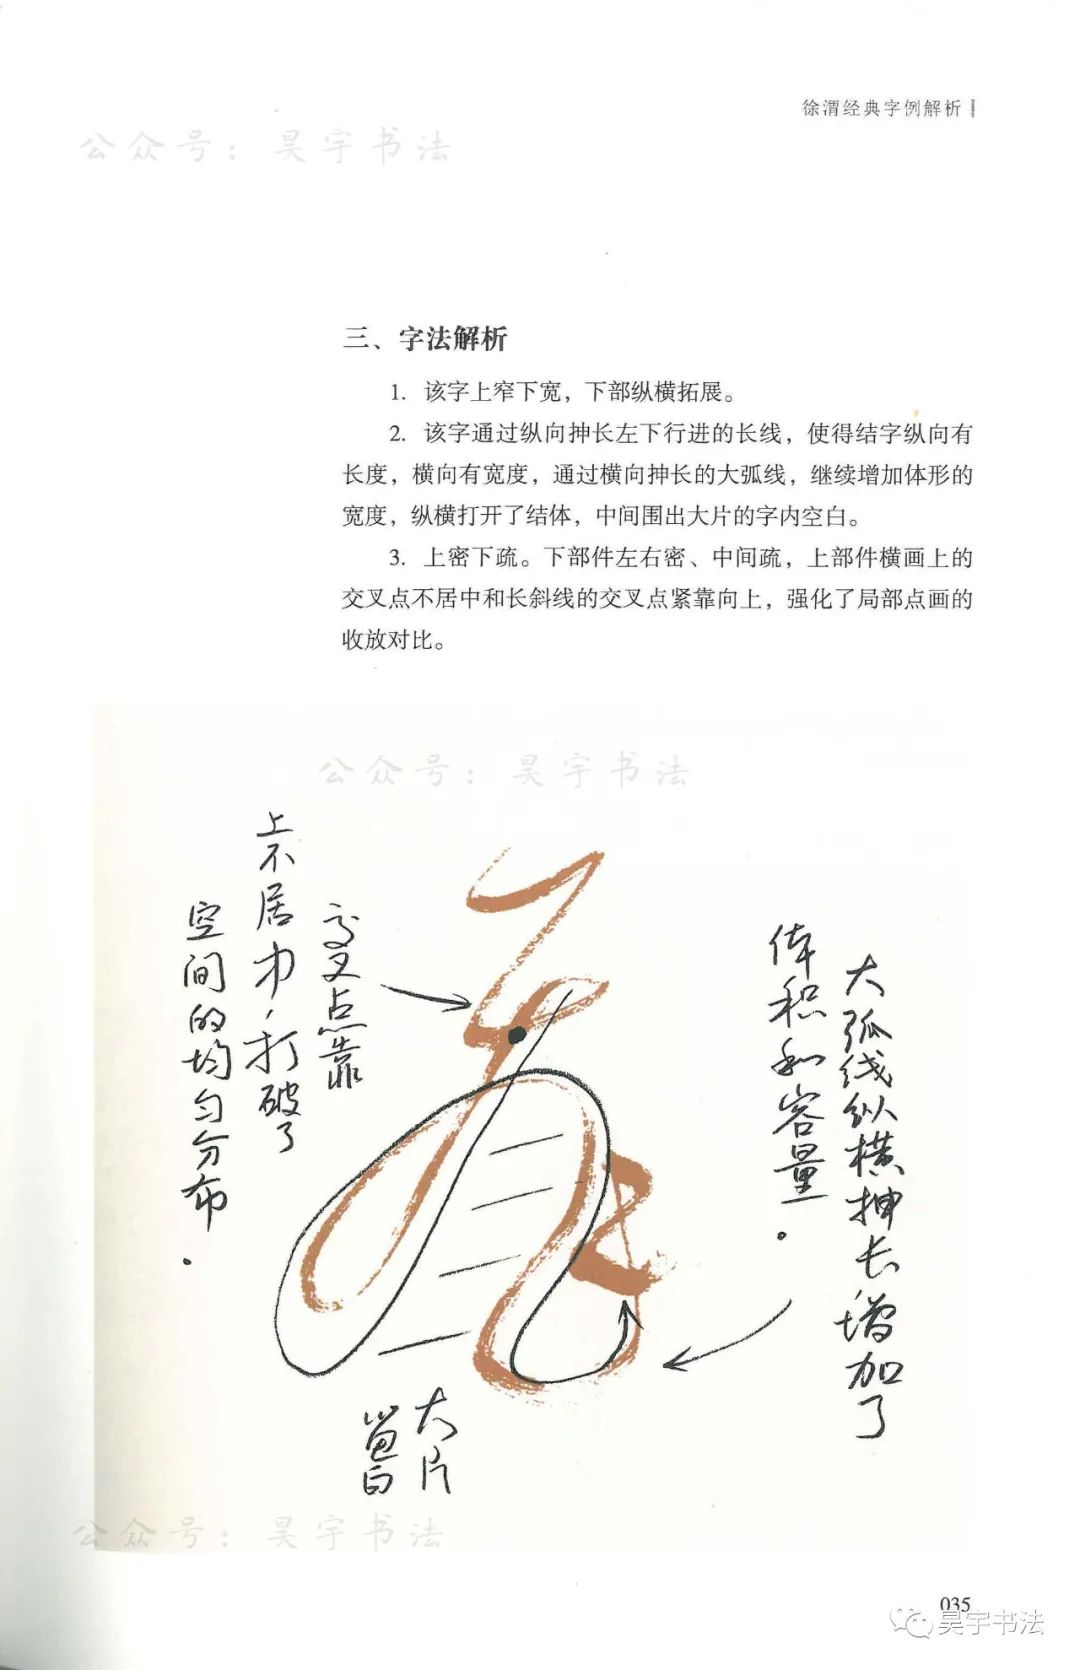 徐渭经典字例解析
公众号：昊宇书法
三、字法解析
1. 该字上窄下宽，下部纵横拓展。
2. 该字通过纵向抻长左下行进的长线，使得结字纵向有
长度，横向有宽度，通过横向抻长的大弧线，继续增加体形的
宽度，纵横打开了结体，中间围出大片的字内空白。
3. 上密下疏。下部件左右密、中间疏，上部件横画上的
交叉点不居中和长斜线的交叉点紧靠向上，强化了局部点画的
收放对比。
公众号：昊宇书法
交叉点靠
上不居中，打破了
空间的均匀分布。
大弧线纵横抻长增加了
体积和容量。
大片
留白
公众号：昊宇书法
035
昊宇书法